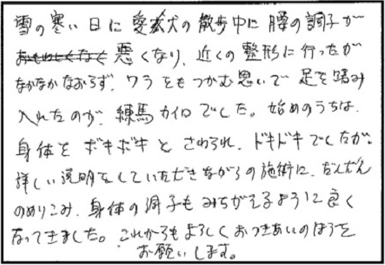 雪の寒い日に愛犬の散歩中に腰の調子が
悪くなり、近くの整形に行ったが
なかなかなおらず、ワラをもつかむ思いで足を踏み
入れたのが、練馬カイロでした。始めのうちは、
身体をボキボキとさわられ、ドキドキでしたが、
詳しい説明をしていただきながらの施術に、だんだん
のめりこみ、身体の調子もみちがえるように良く
なってきました。これからもよろしくおつきあいのほうを
お願いします。